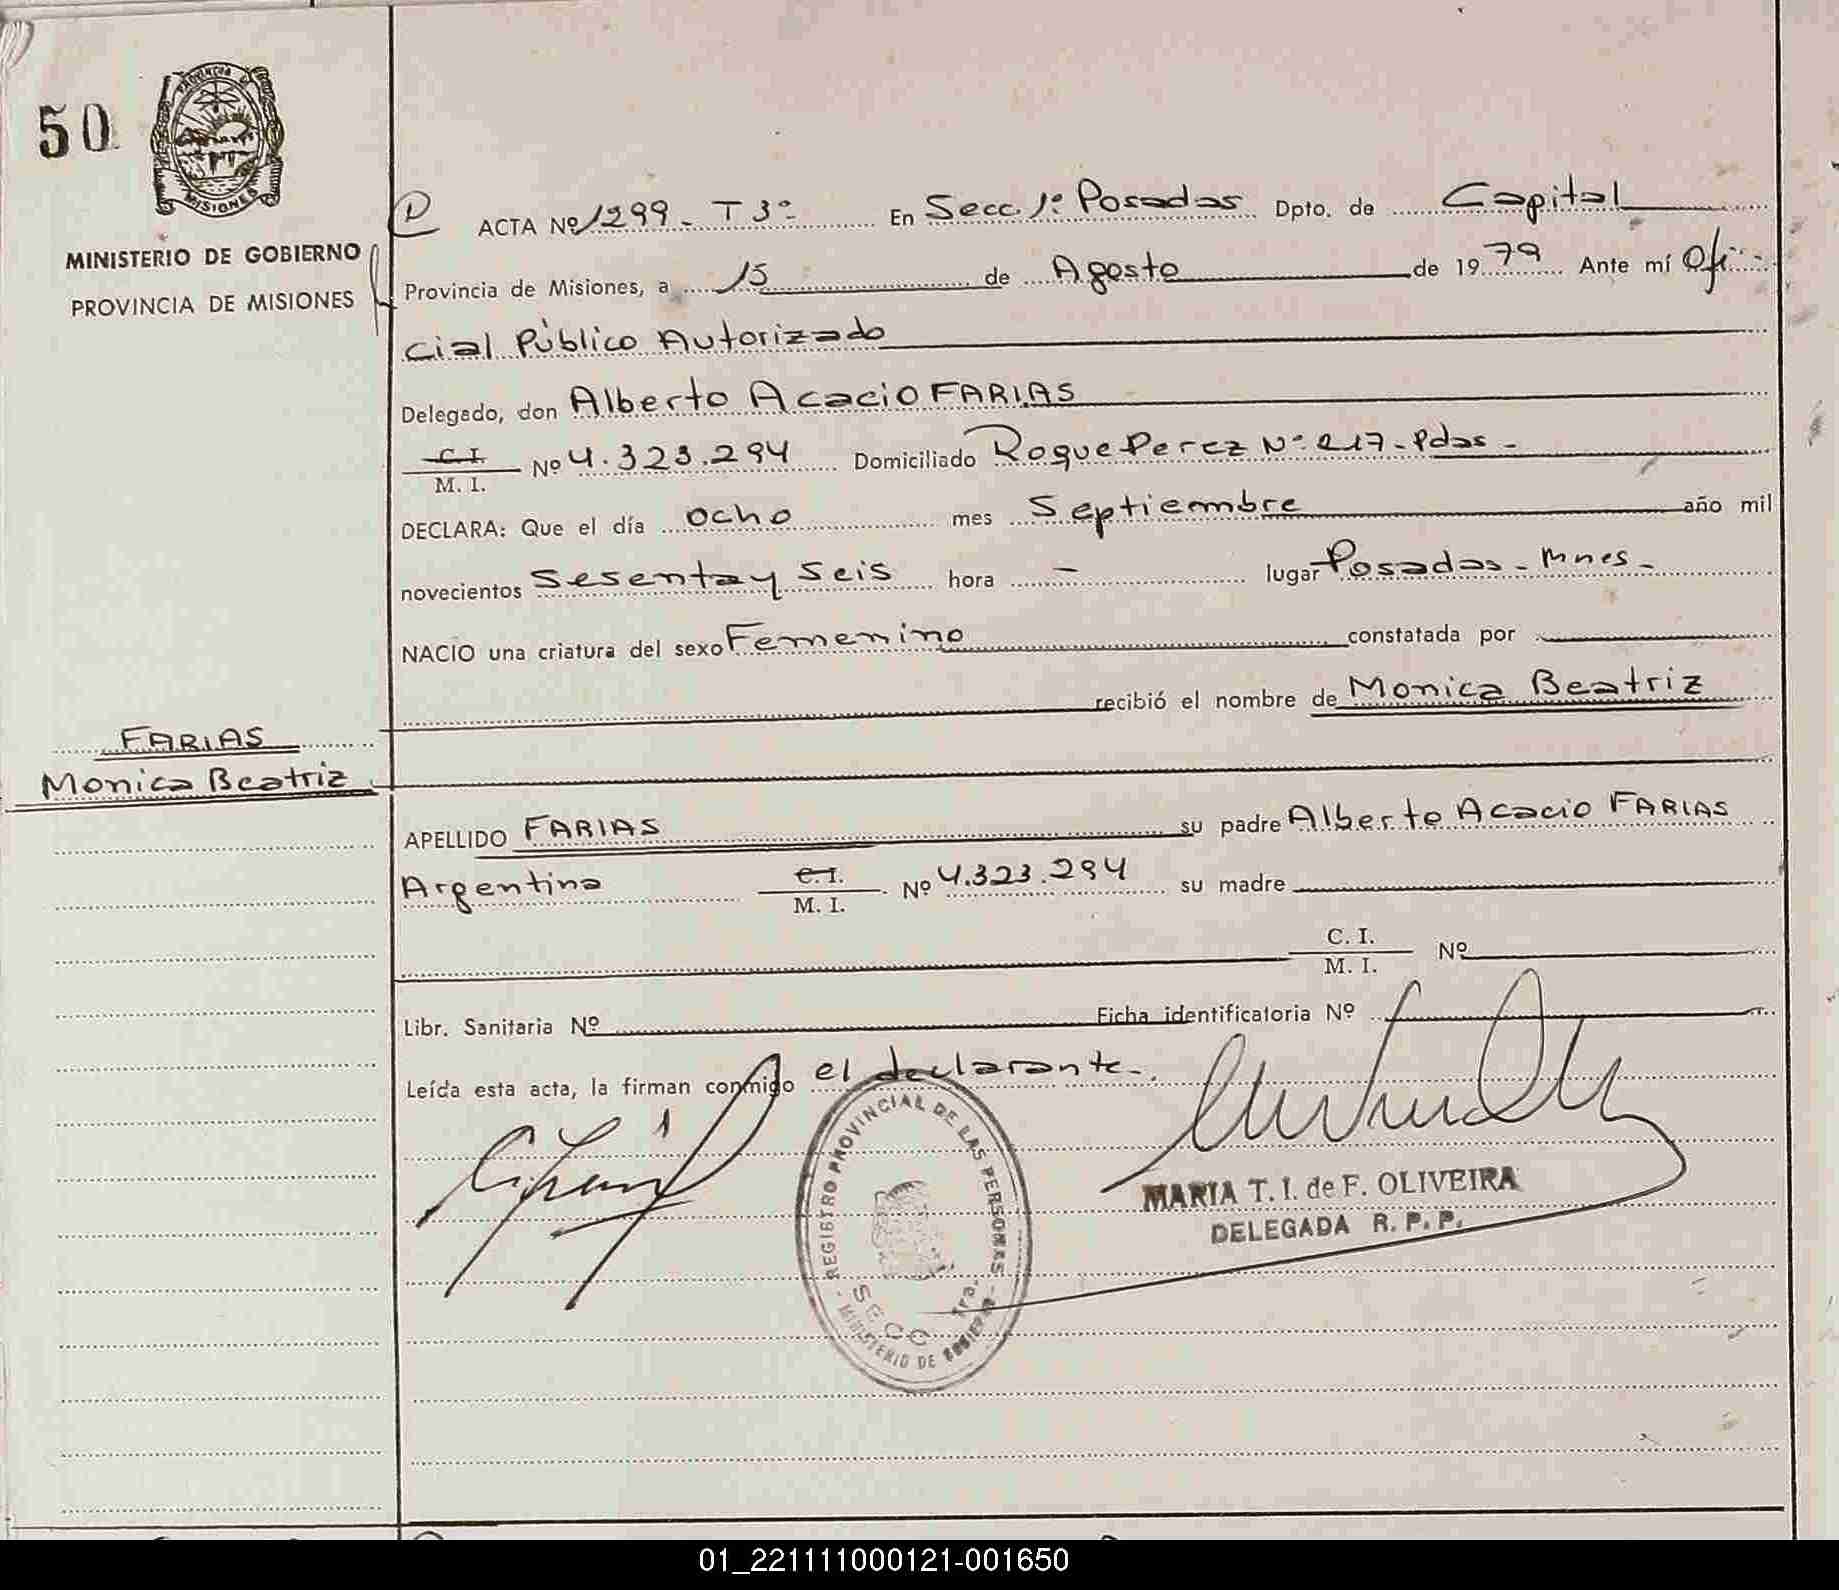 50
PROVINCIA DE
MISIONES
MINISTERIO DE GOBIERNO
PROVINCIA DE MISIONES
ACTA Nº 1299 - T 3º - En Secc. 1º Posadas Dpto. de Capital
Provincia de Misiones, a 15 de Agosto de 1979 Ante mí Ofi-
cial Público Autorizado
Delegado, don Alberto Acacio FARIAS
C. I.
M. I. Nº 4.323.294 Domiciliado Roque Perez Nº 217 - Pdas -
DECLARA: Que el día ocho mes Septiembre año mil
novecientos Sesenta y Seis hora - lugar Posadas - Mnes -
NACIO una criatura del sexo Femenino constatada por
recibió el nombre de Monica Beatriz
FARIAS
Monica Beatriz
APELLIDO FARIAS su padre Alberto Acacio FARIAS
Argentino C. I. M. I. Nº 4.323.294 su madre
C. I.
M. I. Nº
Libr. Sanitaria Nº Ficha identificatoria Nº
Leída esta acta, la firman conmigo el declarante -.
REGISTRO PROVINCIAL DE LAS PERSONAS
SECC 1ra.
- MINISTERIO DE GOBIERNO -
MARIA T. I. de F. OLIVEIRA
DELEGADA R. P. P.
01_221111000121-001650